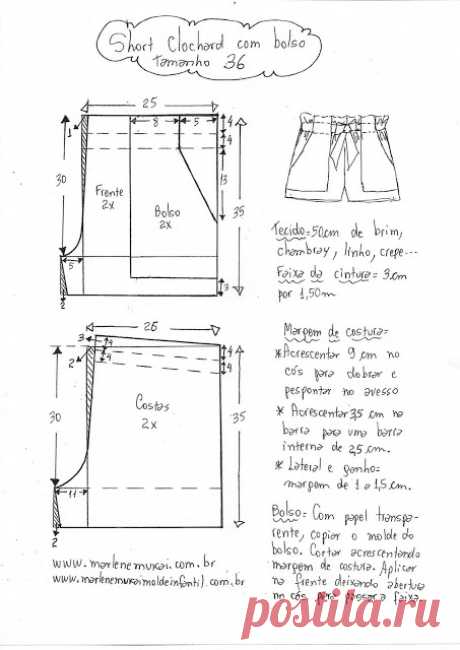 Short Clochard com bolso
tamanho 36
25
8
4
4
1
30
Frente
2x
Bolso
2x
13
35
5
3
2
Tecido = 50cm de brim,
chambray, linho, crepe...
Faixa da cintura = 3cm
por 1,50m
26
3
4
4
2
4
4
Costas
2x
30
35
11
2
Margem de costura =
* Acrescentar 9 cm no
cós para dobrar e
pespontar no avesso
* Acrescentar 3,5 cm na
barra para uma barra
interna de 2,5 cm.
* Lateral e ganho =
margem de 1 a 1,5 cm.
Bolso = Com papel transpa-
rente, copiar o molde do
bolso. Cortar acrescentando
margem de costura. Aplicar
na frente deixando abertura
no cós para passar a faixa
www.marlenemukai.com.br
www.marlenemukaimoldeinfantil.com.br
postila.ru